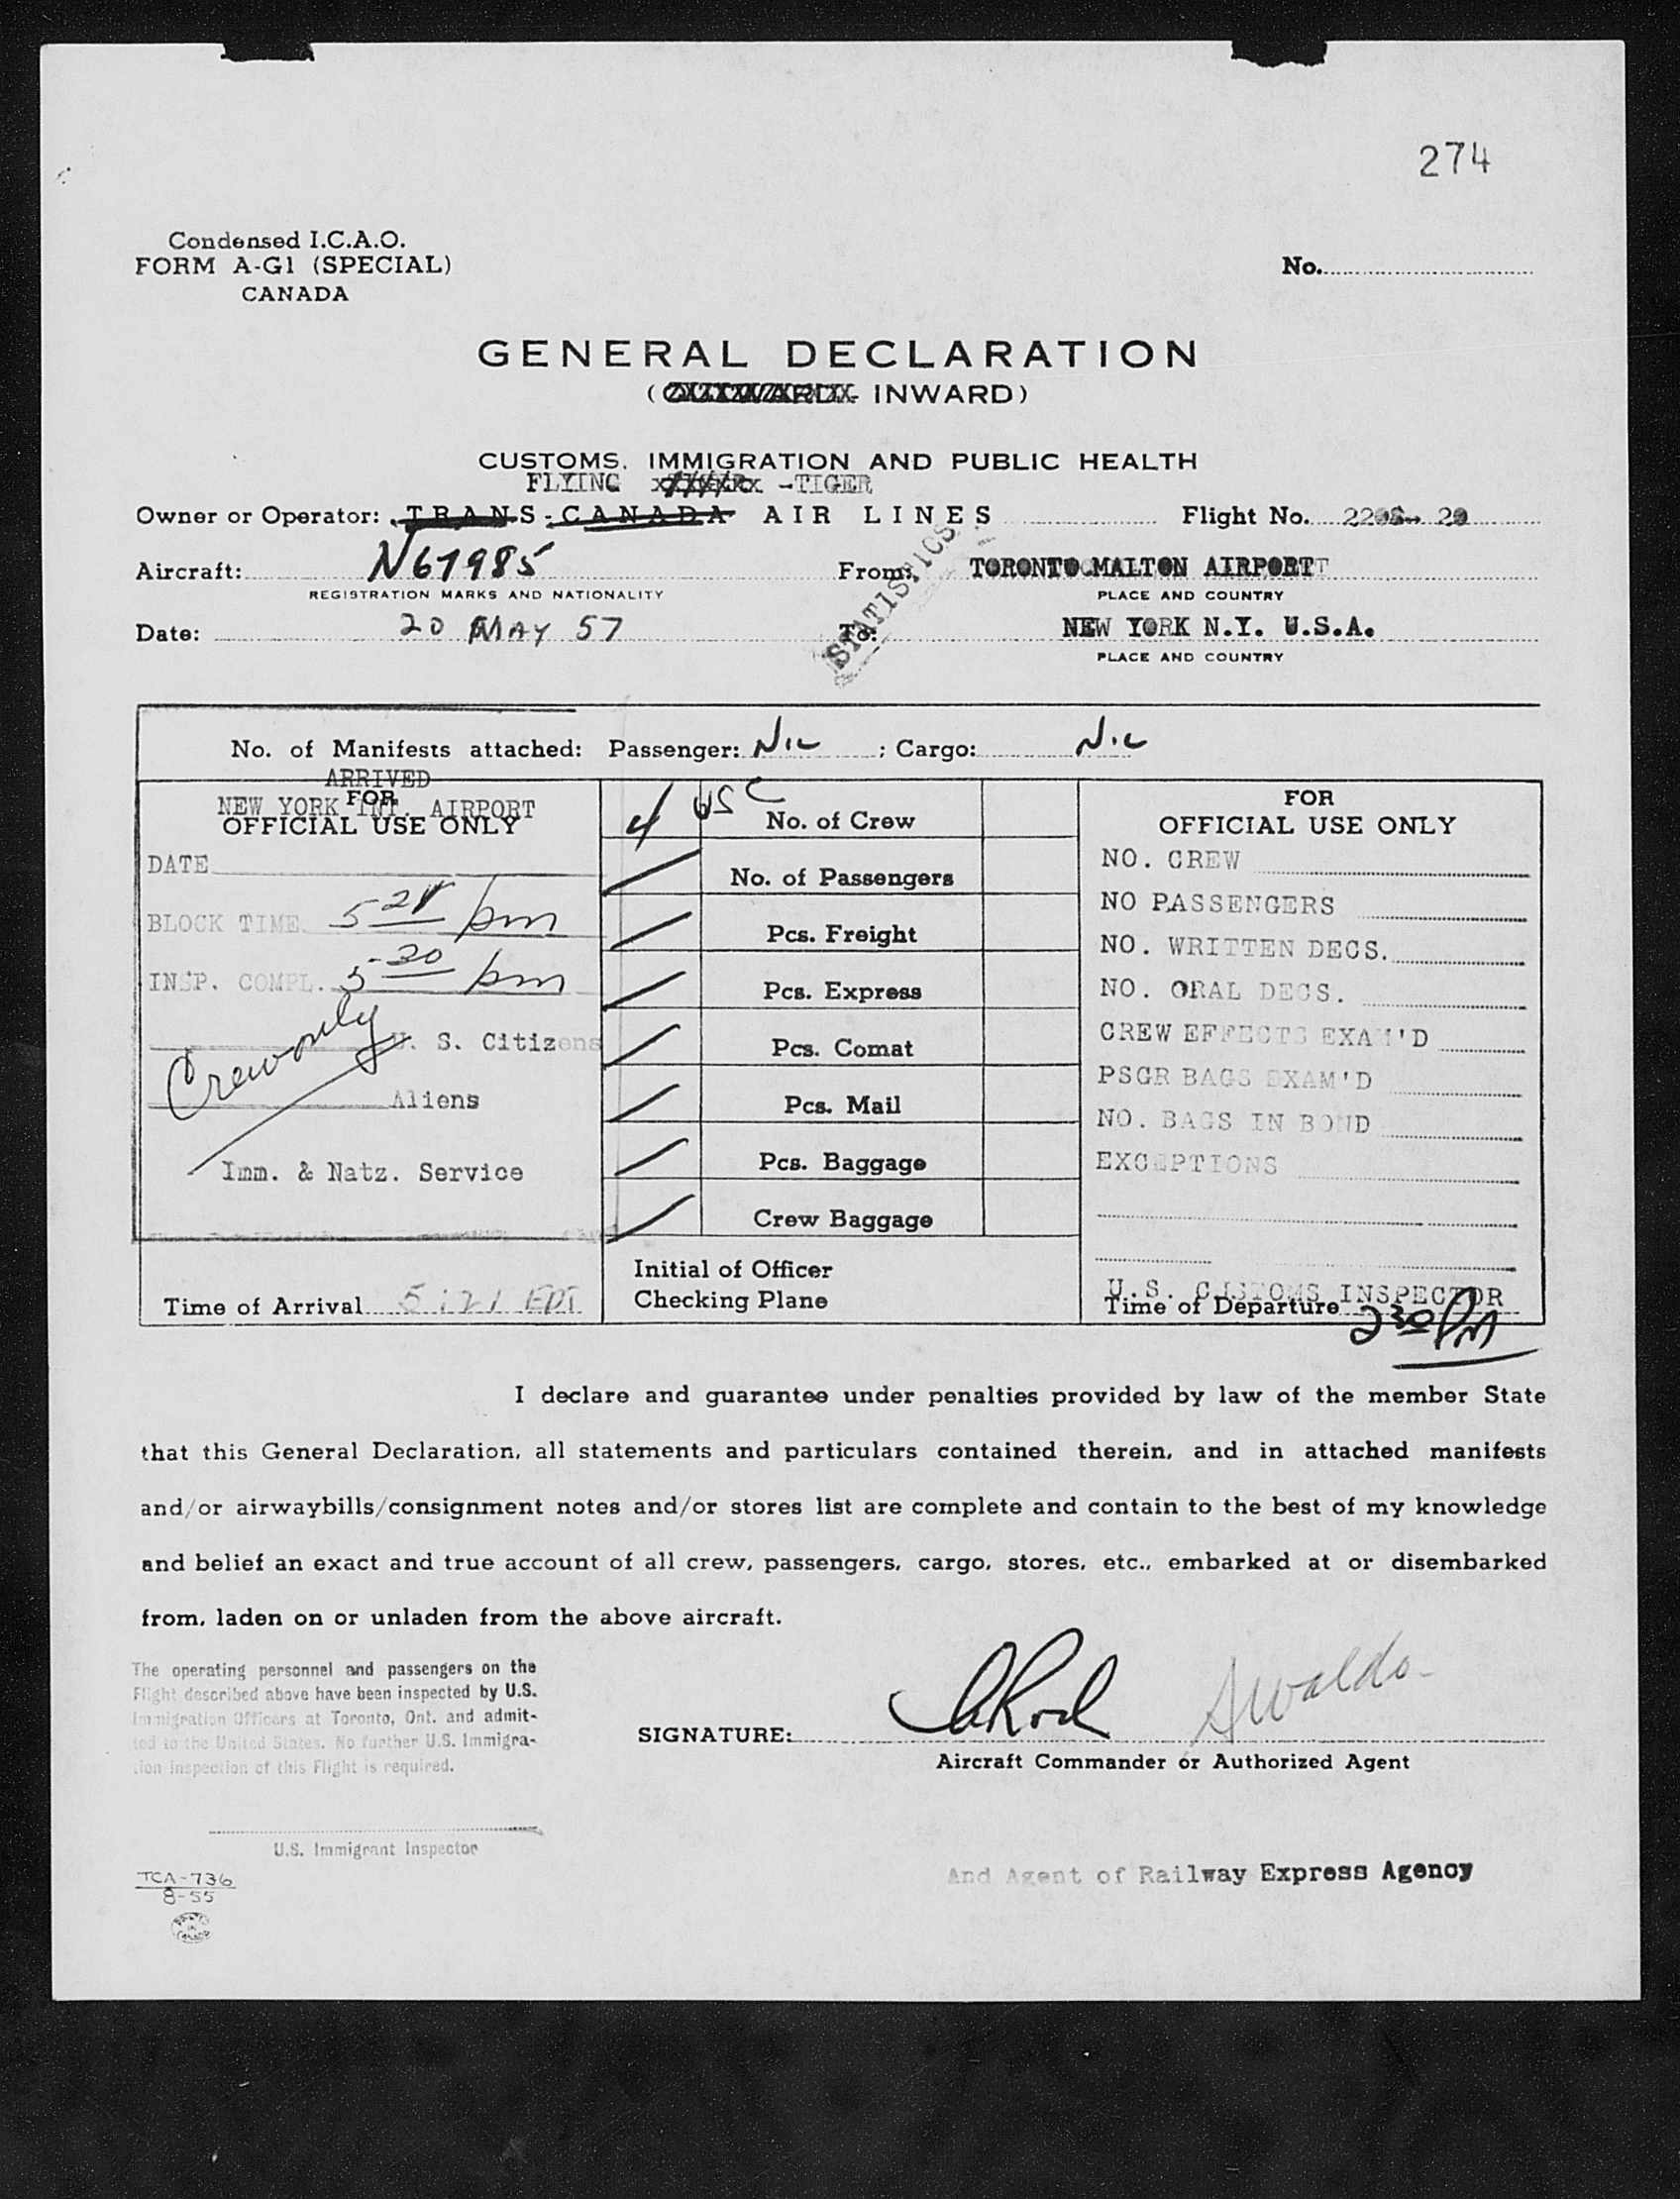 274
Condensed I.C.A.O.
FORM A-G1 (SPECIAL)
CANADA
No.
GENERAL DECLARATION
( INWARD)
CUSTOMS, IMMIGRATION AND PUBLIC HEALTH
FLYING -TIGER
Owner or Operator: TRANS-CANADA AIR LINES Flight No.
Aircraft: N67985 From: TORONTO MALTON AIRPORT
REGISTRATION MARKS AND NATIONALITY PLACE AND COUNTRY
STATISTICS
Date: 20 MAY 57 To: NEW YORK N.Y. U.S.A.
PLACE AND COUNTRY
No. of Manifests attached: Passenger: NIL ; Cargo: NIL
ARRIVED
NEW YORK INT. AIRPORT
FOR
OFFICIAL USE ONLY
DATE
BLOCK TIME 5 pm
INSP. COMPL. 5 30 pm
Crew only
U. S. Citizens
Aliens
Imm. & Natz. Service
Time of Arrival 5:21 EDT
4 USC No. of Crew
No. of Passengers
Pcs. Freight
Pcs. Express
Pcs. Comat
Pcs. Mail
Pcs. Baggage
Crew Baggage
Initial of Officer
Checking Plane
FOR
OFFICIAL USE ONLY
NO. CREW
NO PASSENGERS
NO. WRITTEN DECS.
NO. ORAL DECS.
CREW EFFECTS EXAM'D
PSGR BAGS EXAM'D
NO. BAGS IN BOND
EXCEPTIONS
U.S. CUSTOMS INSPECTOR
Time of Departure 2 30 PM
I declare and guarantee under penalties provided by law of the member State
that this General Declaration, all statements and particulars contained therein, and in attached manifests
and/or airwaybills/consignment notes and/or stores list are complete and contain to the best of my knowledge
and belief an exact and true account of all crew, passengers, cargo, stores, etc., embarked at or disembarked
from, laden on or unladen from the above aircraft.
The operating personnel and passengers on the
Flight described above have been inspected by U.S.
Immigration Officers at Toronto, Ont. and admit-
ted to the United States. No further U.S. Immigra-
tion Inspection of this Flight is required.
U.S. Immigrant Inspector
SIGNATURE:
Aircraft Commander or Authorized Agent
And Agent of Railway Express Agency
TCA-736
8-55